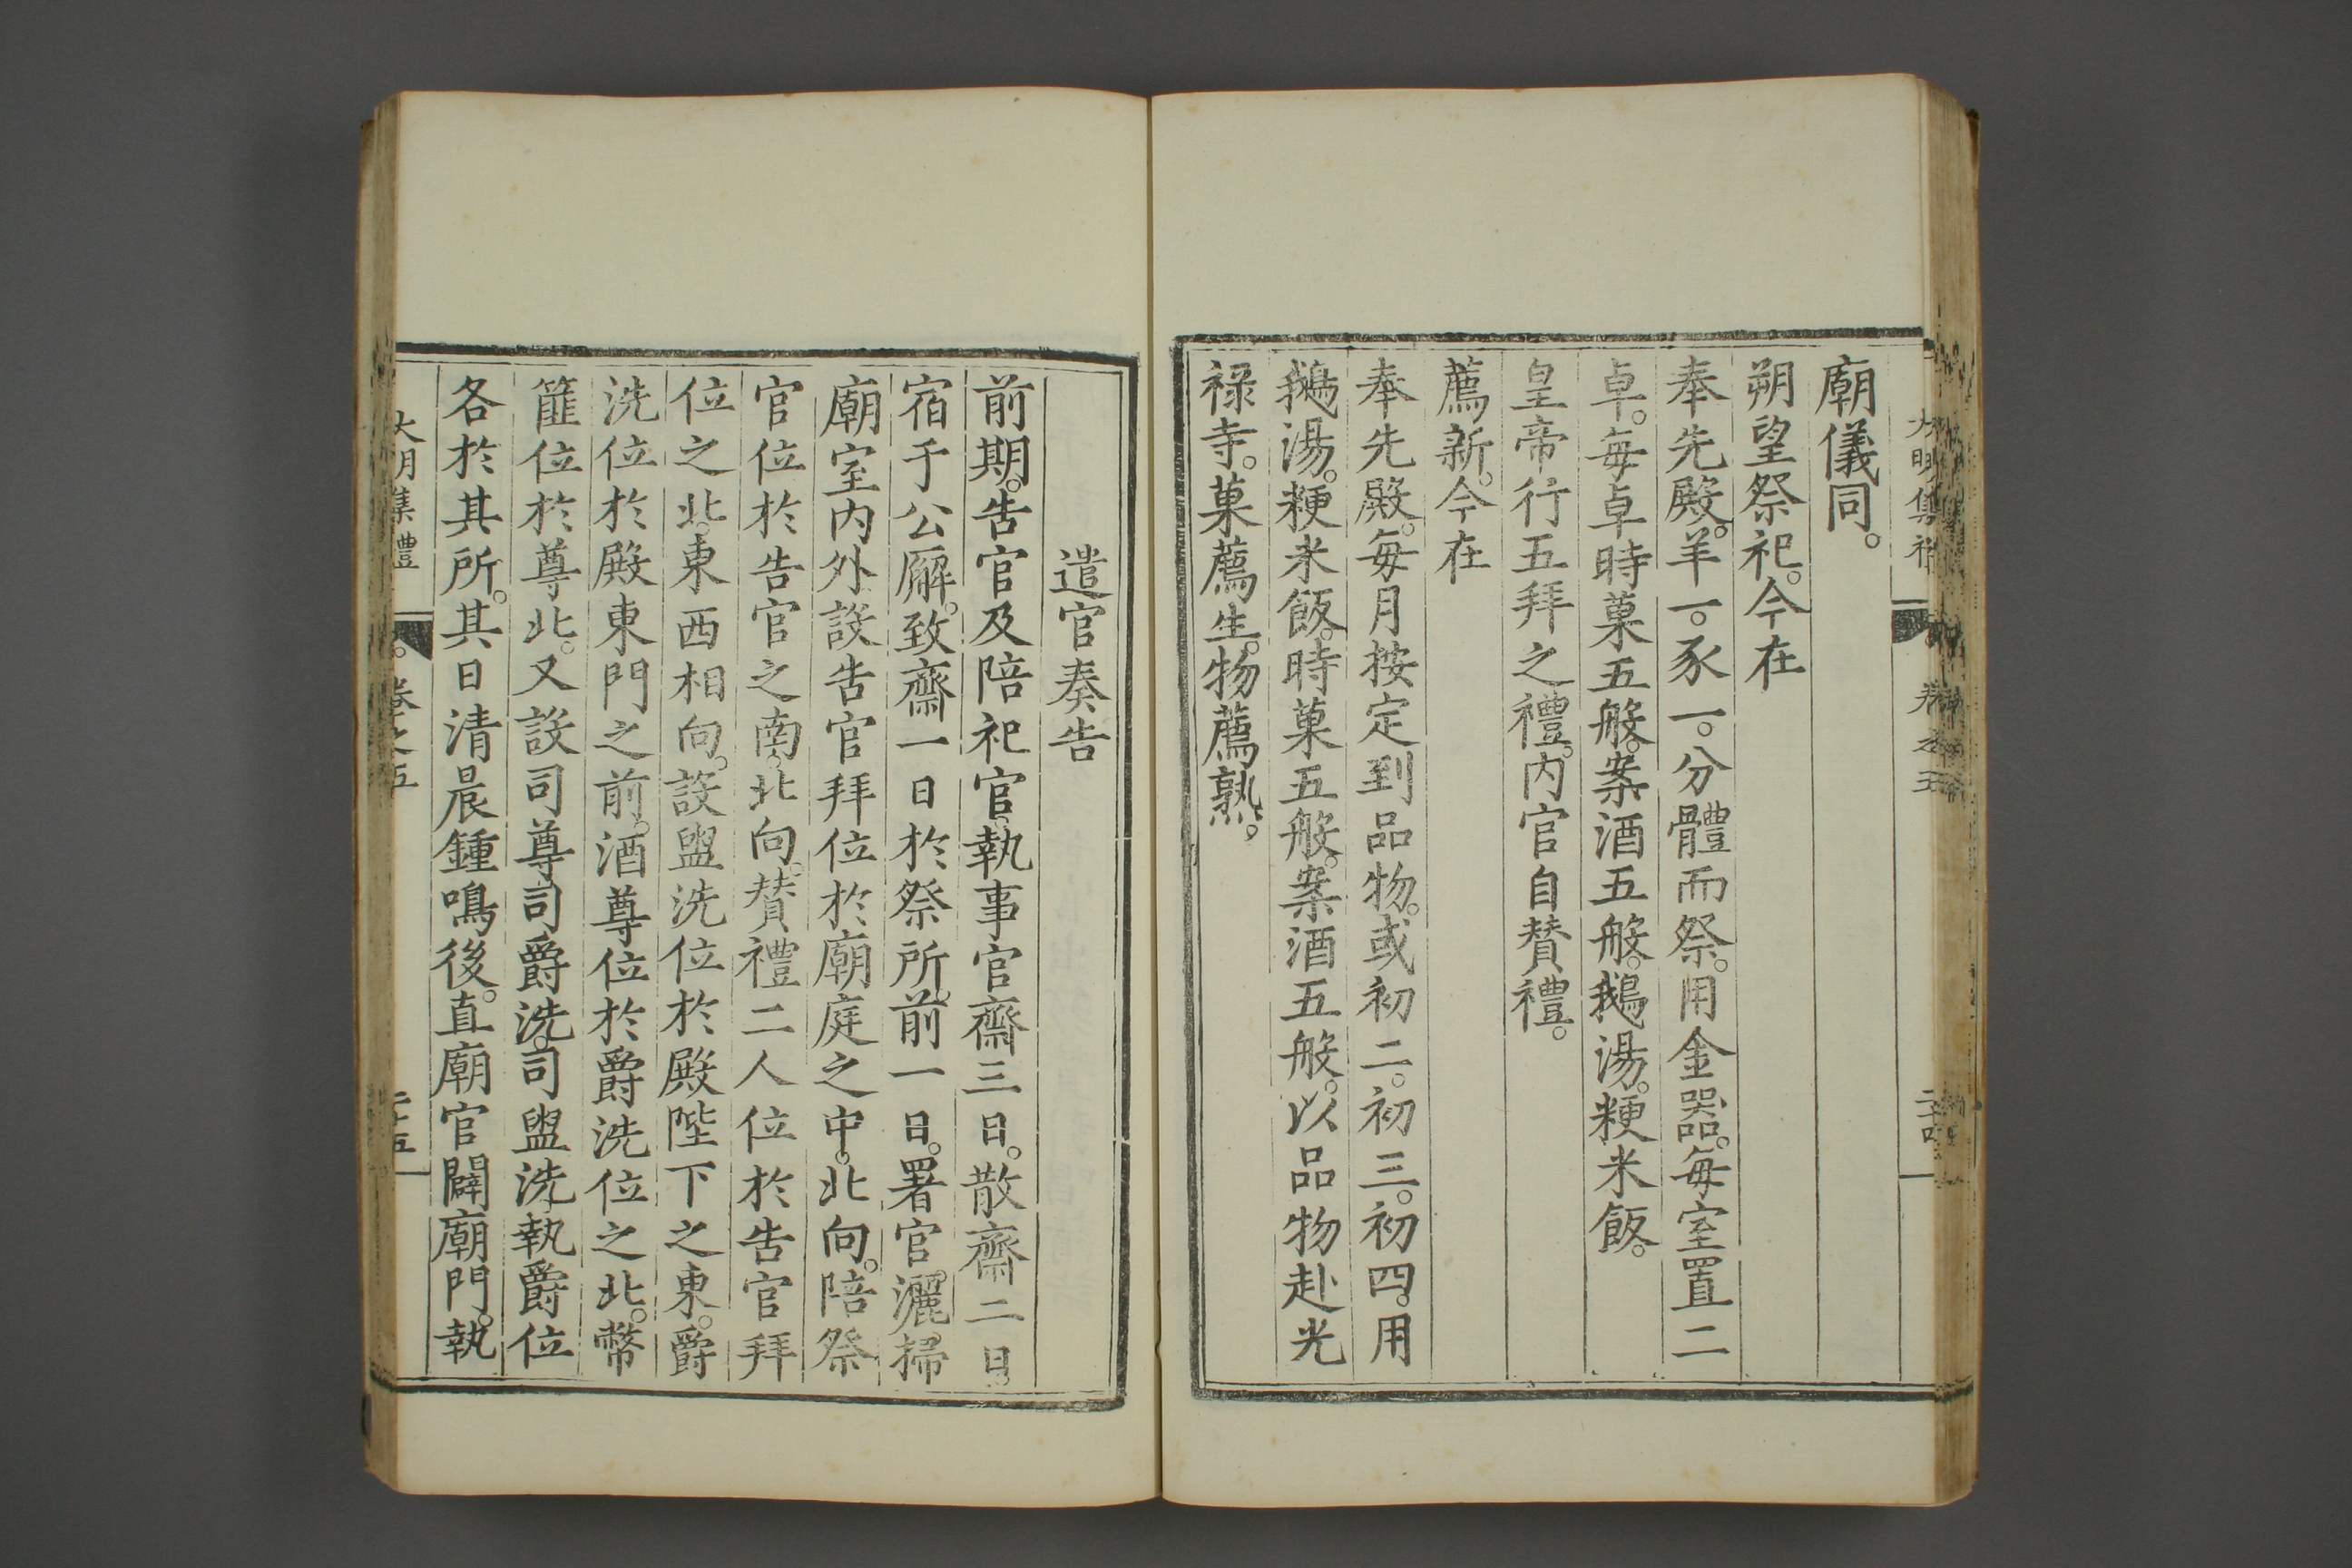 廟儀同。
朔望祭祀。今在
奉先殿。羊一。豕一。分體而祭。用金器。每室置二
卓。每卓時菓五般。案酒五般。鵝湯。粳米飯。
皇帝行五拜之禮。内官自賛禮。
薦新。今在
奉先殿。每月按定到品物。或初二。初三。初四。用
鵝湯。粳米飯。時菓五般。案酒五般。以品物赴光
禄寺。菓薦生。物薦熟。
遣官奏告
前期。告官及陪祀官。執事官齋三日。散齋二日。
宿于公廨。致齋一日於祭所。前一日。署官灑掃
廟室内外設告官拜位於廟庭之中。北向。陪祭
官位於告官之南。北向。賛禮二人位於告官拜
位之北。東西相向。設盥洗位於殿陛下之東。爵
洗位於殿東門之前。酒尊位於爵洗位之北。幣
篚位於尊北。又設司尊司爵洗。司盥洗執爵位
各於其所。其日清晨鍾鳴後。直廟官闢廟門。執
大明集禮
卷之五
二十五